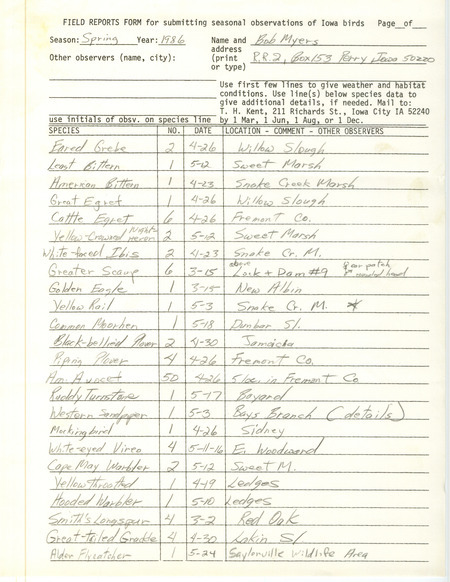 FIELD REPORTS FORM for submitting seasonal observations of Iowa birds Page_of_
Season: Spring Year: 1986 Name and Bob Myers
address R.R.2, Box153 Perry Iowa 50220
Other observers (name, city): (print
or type)
Use first few lines to give weather and habitat
conditions. Use line(s) below species data to
give additional details, if needed. Mail to:
T. H. Kent, 211 Richards St., Iowa City IA 52240
use initials of obsv. on species line by 1 Mar, 1 Jun, 1 Aug, or 1 Dec.
SPECIES NO. DATE LOCATION - COMMENT - OTHER OBSERVERS
Eared Grebe 2 4-26 Willow Slough
Least Bittern 1 5-12 Sweet Marsh
American Bittern 1 4-23 Snake Creek Marsh
Great Egret 1 4-26 Willow Slough
Cattle Egret 6 4-26 Fremont Co.
Yellow-Crowned Night heron 2 5-12 Sweet Marsh
White-faced Ibis 2 4-23 Snake Cr. M.
Greater Scaup 6 3-15 above Lock + Dam #9 ear patch rounded head
Golden Eagle 1 3-15 New Albin
Yellow Rail 1 5-3 Snake Cr. M. *
Common Moorhen 1 5-18 Dunbar Sl.
Black-bellied Plover 2 4-30 Jamaica
Piping Plover 4 4-26 Fremont Co.
Am. Avocet 50 4-26 5 loc. in Fremont Co
Ruddy Turnstone 1 5-17 Bayard
Western Sandpiper 1 5-3 Bays Branch (details)
Mockingbird 1 4-26 Sidney
White-eyed Vireo 4 5-11-16 E. Woodward
Cape May Warbler 2 5-12 Sweet M.
Yellow throated 1 4-19 Ledges
Hooded Warbler 1 5-10 Ledges
Smith's Longspur 4 3-2 Red Oak
Great-tailed Grackle 4 4-30 Lakin Sl
Alder Flycatcher 1 5-24 Saylorville Wildlife Area